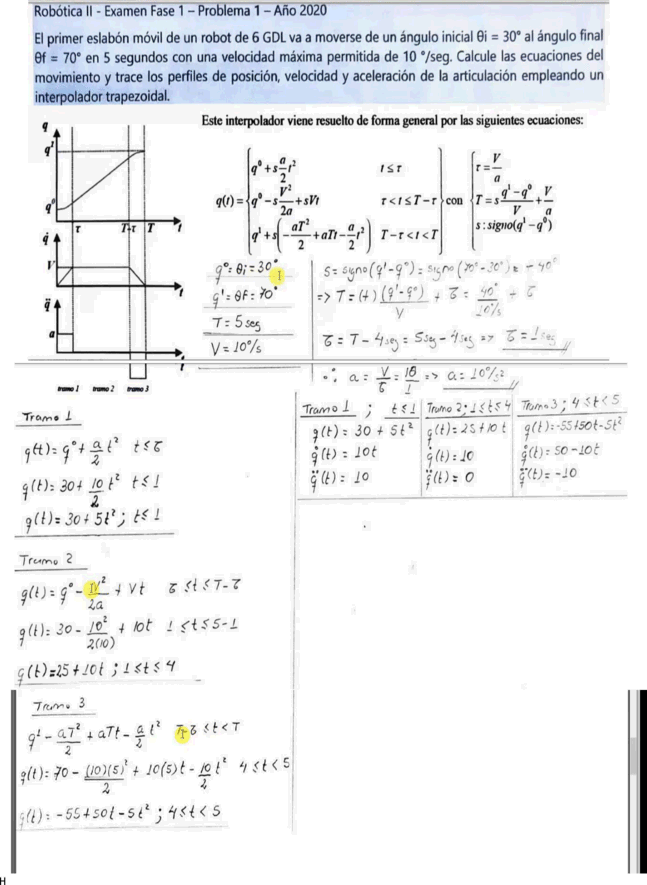 Robótica II - Examen Fase 1 – Problema 1 – Año 2020
El primer eslabón móvil de un robot de 6 GDL va a moverse de un ángulo inicial θi = 30° al ángulo final
θf = 70° en 5 segundos con una velocidad máxima permitida de 10 °/seg. Calcule las ecuaciones del
movimiento y trace los perfiles de posición, velocidad y aceleración de la articulación empleando un
interpolador trapezoidal.
Este interpolador viene resuelto de forma general por las siguientes ecuaciones:
q
q¹
q⁰
τ T-τ T t
q̇
V
t
q̈
a
t
tramo 1 tramo 2 tramo 3
q(t) = { q⁰ + s a/2 t² t ≤ τ
q⁰ - s V²/2a + sVt τ < t ≤ T - τ
q¹ + s(-aT²/2 + aTt - a/2 t²) T - τ < t < T } con { τ = V/a
T = s (q¹ - q⁰)/V + V/a
s : signo(q¹ - q⁰)
q° = θi = 30°
q' = θF = 70°
T = 5 seg
V = 10°/s
S = signo (q' - q°) = signo (70° - 30°) = + 40°
=> T = (+) (q' - q°)/V + τ = 40°/10°/s + τ
τ = T - 4seg = 5seg - 4seg => τ = 1 seg
∴ a = V/τ = 10/1 => a = 10°/s²
Tramo 1 ; t ≤ 1
q(t) = 30 + 5t²
q̇(t) = 10t
q̈(t) = 10
Tramo 2; 1 ≤ t ≤ 4
q(t) = 25 + 10t
q̇(t) = 10
q̈(t) = 0
Tramo 3; 4 ≤ t < 5
q(t) = -55 + 50t - 5t²
q̇(t) = 50 - 10t
q̈(t) = -10
Tramo 1
q(t) = q° + a/2 t² t ≤ τ
q(t) = 30 + 10/2 t² t ≤ 1
q(t) = 30 + 5t² ; t ≤ 1
Tramo 2
q(t) = q° - V²/2a + Vt τ ≤ t ≤ T - τ
q(t) = 30 - 10²/2(10) + 10t 1 ≤ t ≤ 5 - 1
q(t) = 25 + 10t ; 1 ≤ t ≤ 4
Tramo 3
q' - aT²/2 + aTt - a/2 t² T - τ ≤ t < T
q(t) = 70 - (10)(5)²/2 + 10(5)t - 10/2 t² 4 ≤ t < 5
q(t) = -55 + 50t - 5t² ; 4 ≤ t < 5
H